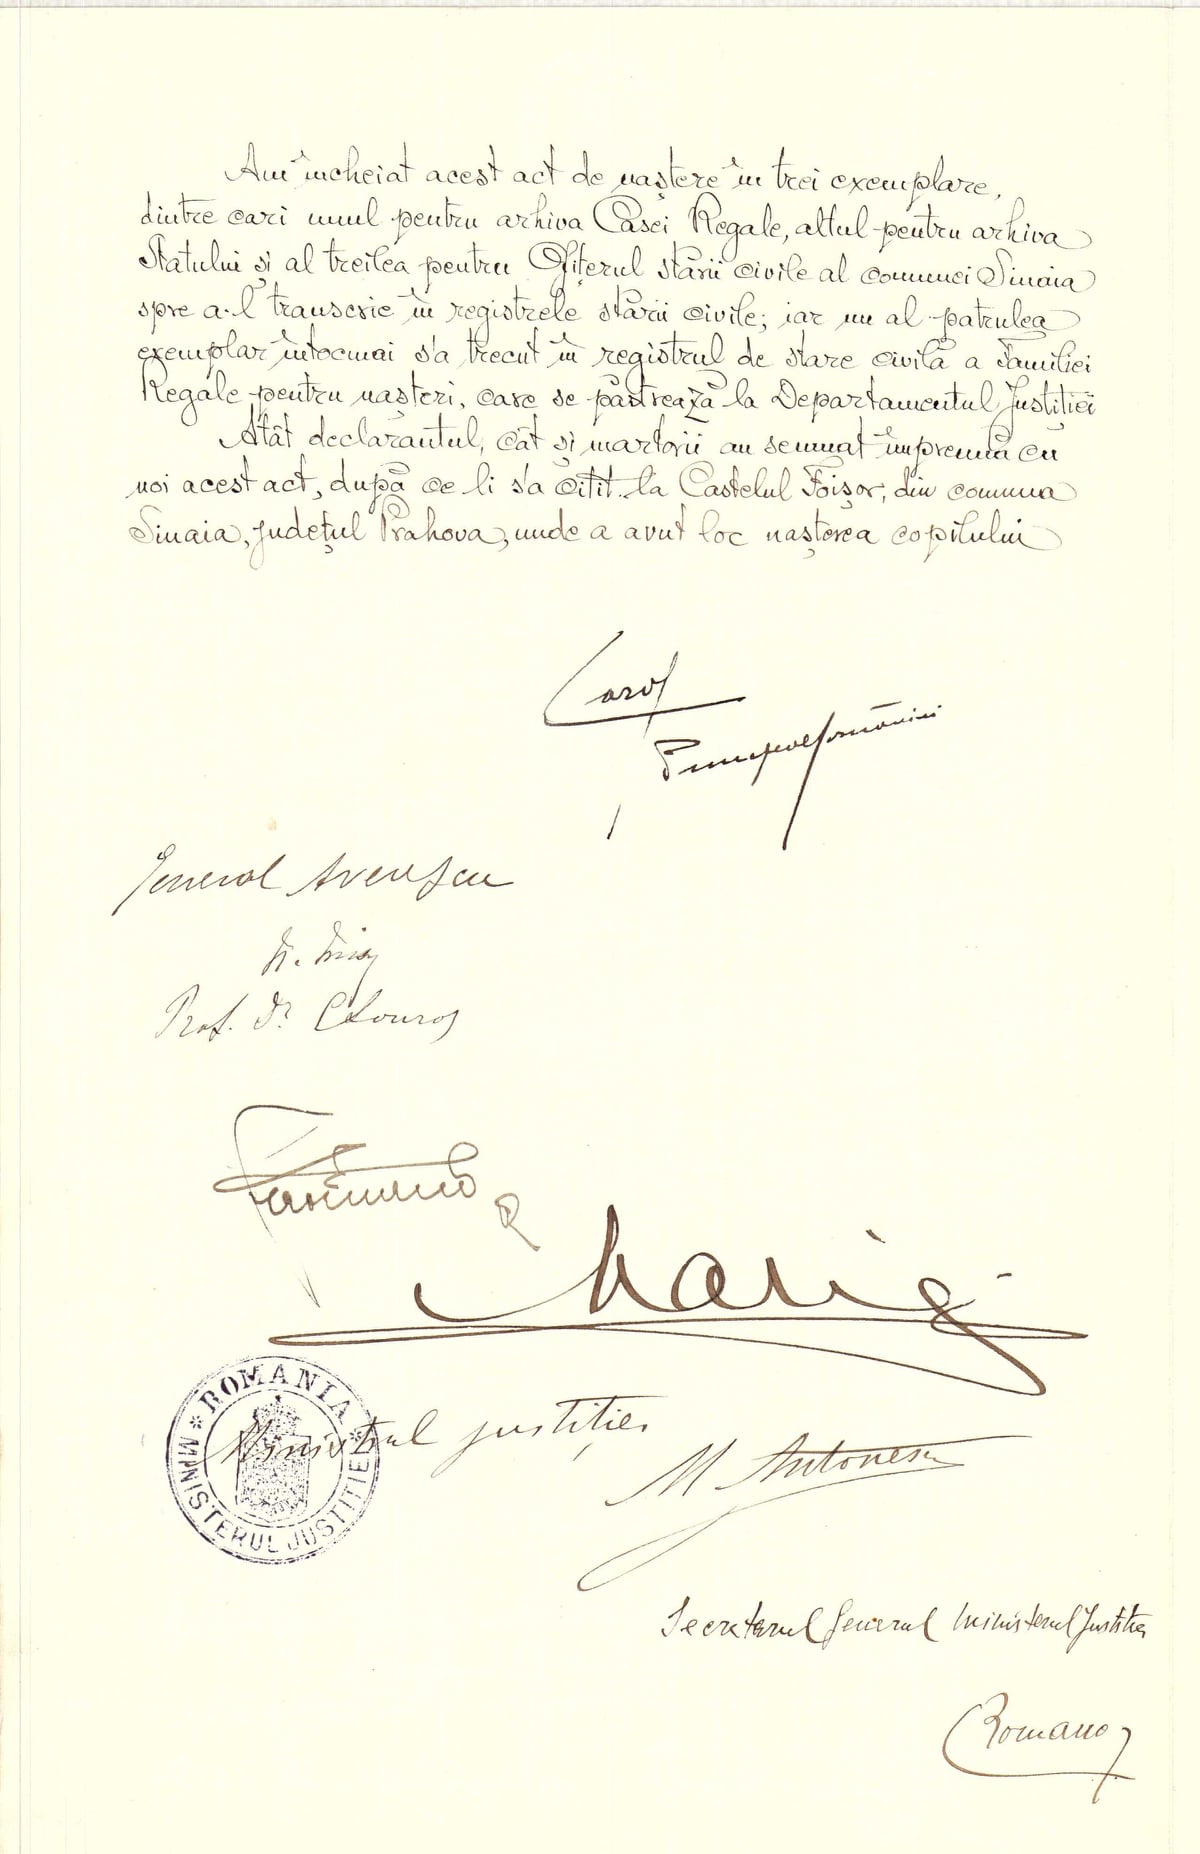 Am încheiat acest act de naștere în trei exemplare,
dintre cari unul pentru arhiva Casei Regale, altul pentru arhiva
Statului și al treilea pentru Ofițerul stării civile al comunei Sinaia
spre a-l transcrie în registrele stării civile; iar un al patrulea
exemplar întocmai s'a trecut în registrul de stare civilă a Familiei
Regale pentru nașteri, care se păstrează la Departamentul Justiției
Atât declarantul, cât și martorii au semnat împreună cu
noi acest act, după ce li s'a citit la Castelul Foișor, din comuna
Sinaia, județul Prahova, unde a avut loc nașterea copilului
Carol
Principe al României
General Averescu
Prof. Dr C Louros
Ferdinand R
Maria
ROMANIA
* MINISTERUL JUSTITIEI *
Ministrul justiției
M Antonescu
Secretarul General Ministerul Justitiei
Romano